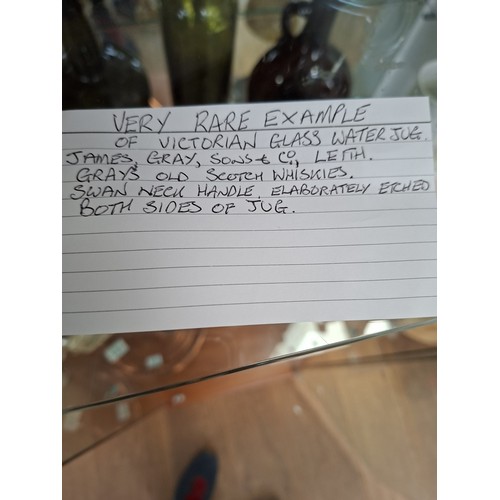 VERY RARE EXAMPLE
OF VICTORIAN GLASS WATER JUG.
JAMES, GRAY, SONS & CO, LEITH.
GRAYS OLD SCOTCH WHISKIES.
SWAN NECK HANDLE, ELABORATELY ETCHED
BOTH SIDES OF JUG.